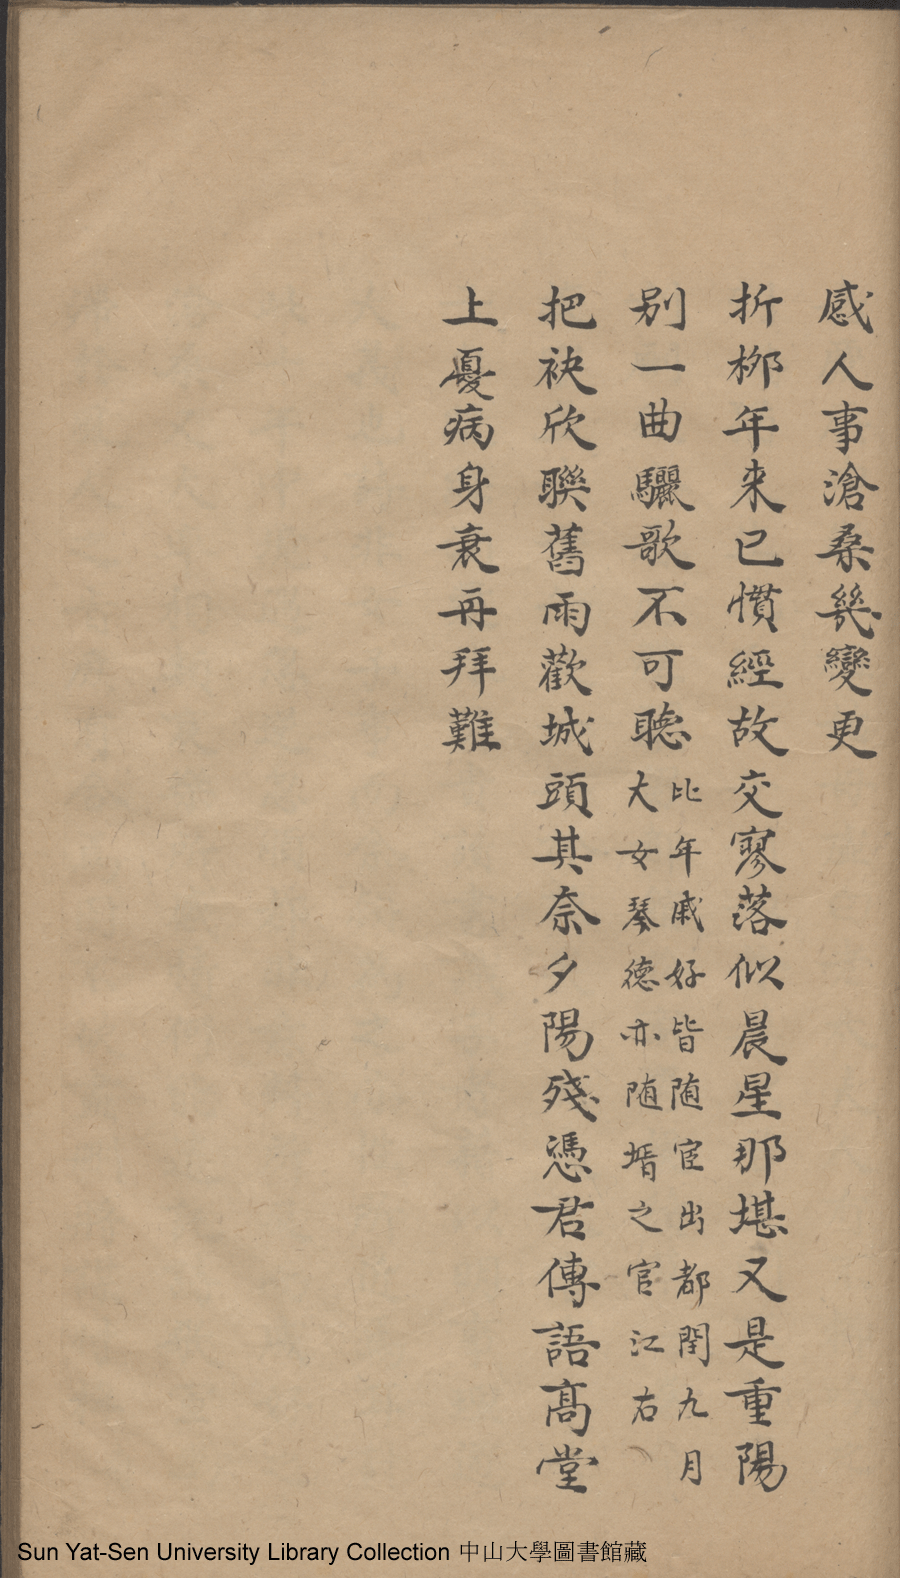 感人事滄桑幾變更
折栁年来已慣經故交寥落似晨星那堪又是重陽
别一曲驪歌不可聽比年戚好皆随宦出都閏九月
大女琴德亦随壻之官江右
把袂欣聯舊雨歡城頭其奈夕陽殘憑君傳語髙堂
上憂病身衰再拜難
Sun Yat-Sen University Library Collection 中山大學圖書館藏